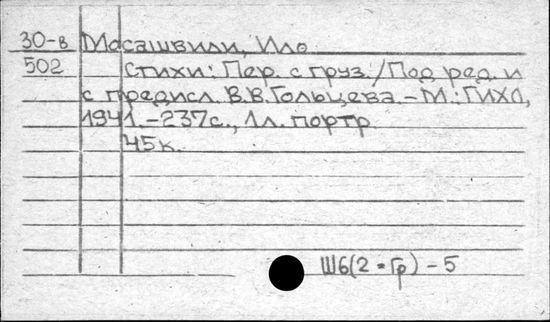 30-в Мосашвили, Ило
502 Стихи: Пер. с груз./Под ред. и
с предисл. В.В.Гольцева.-М.:ГИХЛ,
1941.-237с., 1л. портр.
45к.
Ш6(2=Гр)-5